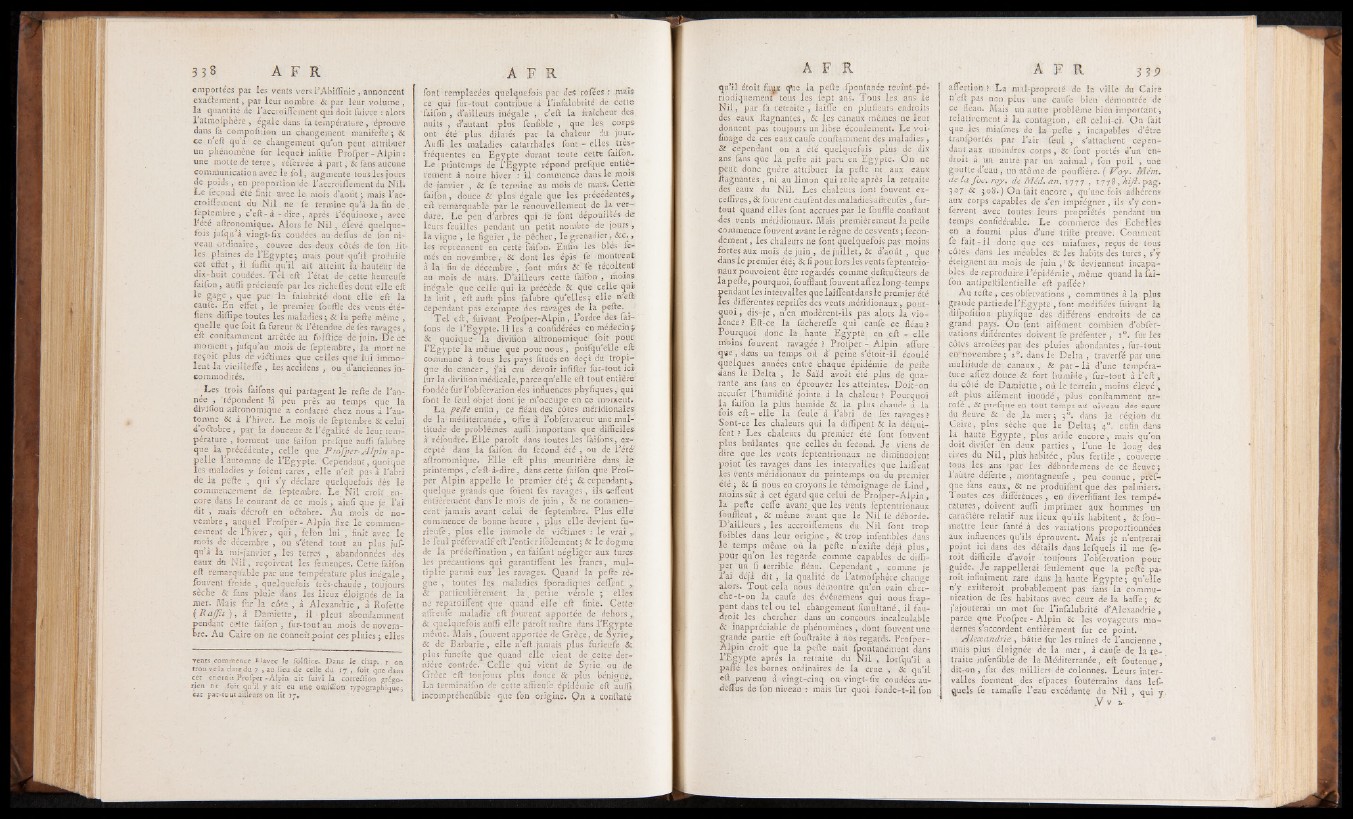 338 A F R
emportées par les vents vers l'Abiſſinie, annoncent
exactement, par leur nombre & par leur volume,
la quantité de l'accroiſſement qui doit ſuivre : alors
l'atmoſphère, égale dans ſa température, éprouve
dans ſa compoſition un changement manifeſte; &
ce n'eſt qu'à ce changement qu'on peut attribuer
un phénomène ſur lequel inſiſte Proſper-Alpin :
une motte de terre, réſervée à part, & ſans aucune
communication avec le ſol, augmente tous les jours
de poids, en proportion de l'accroiſſement du Nil.
Le ſecond été finit avec le mois d'août; mais l'ac-
croiſſement du Nil ne ſe termine qu'à la fin de
ſeptembre, c'eſt-à-dire, après l'équinoxe, avec
l'été aſtronomique. Alors le Nil, élevé quelque-
fois juſqu'à vingt-ſix coudées au-deſſus de ſon ni-
veau ordinaire, couvre des deux côtés de ſon lit
les plaines de l'Egypte; mais pour qu'il produiſe
cet effet, il ſuffit qu'il ait atteint la hauteur de
dix-huit coudées. Tel eſt l'état de cette heureuſe
ſaiſon, auſſi précieuſe par les richeſſes dont elle eſt
le gage, que par la ſalubrité dont elle eſt la
cauſe. En effet, le premier ſouffle des vents été-
ſiens diſſipe toutes les maladies; & la peſte même,
quelle que ſoit ſa fureur & l'étendue de ſes ravages,
eſt conſtamment arrêtée au ſolſtice de juin. De ce
moment, juſqu'au mois de ſeptembre, la mort ne
reçoit plus de victimes que celles que lui immo-
lent la vieilleſſe, les accidens, ou d'anciennes in-
commodités.
Les trois ſaiſons qui partagent le reſte de l'an-
née, répondent à peu près au temps que la
diviſion aſtronomique a conſacré chez nous à l'au-
tomne & à l'hiver. Le mois de ſeptembre & celui
d'octobre, par la douceur & l'égalité de leur tem-
pérature, forment une ſaiſon preſque auſſi ſalubre
que la précédente, celle que Proſper-Alpin ap-
pelle l'automne de l'Egypte. Cependant, quoique
les maladies y ſoient rares, elle n'eſt pas à l'abri
de la peſte, qui s'y déclare quelquefois dès le
commencement de ſeptembre. Le Nil croît en-
core dans le courant de ce mois, ainſi que je l'ai
dit, mais décroît en octobre. Au mois de no-
vembre, auquel Proſper-Alpin fixe le commen-
cement de l'hiver, qui, ſelon lui, finit avec le
mois de décembre, ou s'étend tout au plus juſ-
qu'à la mi-janvier, les terres, abandonnées des
eaux du Nil, reçoivent les ſemences. Cette ſaiſon
eſt remarquable par une température plus inégale,
ſouvent froide, quelquefois très-chaude, toujours
sèche & ſans pluie dans les lieux éloignés de la
mer. Mais ſur la côte, à Alexandrie, à Roſette
(Raſſit), à Damiette, il pleut abondamment
pendant cette ſaiſon, ſur-tout au mois de novem-
bre. Au Caire on ne connoît point ces pluies; elles
vents commence avec le ſolſtice. Dans le chap. 7 on
A F R
ſont remplacées quelquefois par des roſées : mais
ce qui ſur-tout contribue à l'inſalubrité de cette
ſaiſon, d'ailleurs inégale, c'eſt la fraîcheur des
nuits, d'autant plus ſenſible, que les corps
ont été plus dilatés par la chaleur du jour.
Auſſi les maladies catarrhales ſont-elles très-
fréquentes en Egypte durant toute cette ſaiſon.
Le printemps de l'Egypte répond preſque entiè-
rement à notre hiver : il commence dans le mois
de janvier, & ſe termine au mois de mars. Cette
ſaiſon, douce & plus égale que les précédentes,
eſt remarquable par le renouvellement de la ver-
dure. Le peu d'arbres qui ſe ſont dépouillés de
leurs feuilles pendant un petit nombre de jours,
la vigne, le figuier, le pêcher, le grenadier, &c.,
les reprennent en cette ſaiſon. Enfin les blés ſe-
més en novembre, & dont les épis ſe montrent
à la fin de décembre, ſont mûrs & ſe récoltent
au mois de mars. D'ailleurs cette ſaiſon, moins
inégale que celle qui la précède & que celle qui
la ſuit, eſt auſſi plus ſalubre qu'elles; elle n'eſt
cependant pas exempte des ravages de la peſte.
Tel eſt, ſuivant Proſper-Alpin, l'ordre des ſai-
ſons de l'Egypte. Il les a conſidérées en médecin;
& quoique la diviſion aſtronomique ſoit pour
l'Egypte la même que pour nous, puiſqu'elle eſt
commune à tous les pays ſitués en deçà du tropi-
que du cancer, j'ai cru devoir inſiſter ſur-tout ici
ſur la diviſion médicale, parce qu'elle eſt tout entière
fondée ſur l'obſervation des influences phyſiques, qui
ſont le ſeul objet dont je m'occupe en ce moment.
La peſte enfin, ce fléau des côtes méridionales
de la méditerranée, offre à l'obſervateur une mul-
titude de problèmes auſſi importans que difficiles
à réſoudre. Elle paroît dans toutes les ſaiſons, ex-
cepté dans la ſaiſon du ſecond été, ou de l'été
aſtronomique. Elle eſt plus meurtrière dans le
printemps, c'eſt-à-dire, dans cette ſaiſon que Proſ-
per Alpin appelle le premier été; & cependant,
quelque grands que ſoient ſes ravages, ils ceſſent
entièrement dans le mois de juin, & ne commen-
cent jamais avant celui de ſeptembre. Plus elle
commence de bonne heure, plus elle devient fu-
rieuſe, plus elle immole de victimes : le vrai,
le ſeul préſervatif eſt l'entier iſolement; & le dogme
de la prédeſtination, en faiſant négliger aux turcs
les précautions qui garantiſſent les francs, mul-
tiplie parmi eux les ravages. Quand la peſte rè-
gne, toutes les maladies ſporadiques ceſſent,
& particulièrement la petite vérole; elles
ne reparoiſſent que quand elle eſt finie. Cette
affreuſe maladie eſt ſouvent apportée de dehors,
& quelquefois auſſi elle paroît naître dans l'Egypte
même. Mais, ſouvent apportée de Grèce, de Syrie,
& de Barbarie, elle n'eſt jamais plus furieuſe &
plus funeſte que quand elle vient de cette der-
nière contrée. Celle qui vient de Syrie ou de
Grèce eſt toujours plus douce & plus bénigne.
La terminaiſon de cette affreuſe épidémie eſt auſſi
incompréhenſible que ſon origine. On a conſtaté
A F R
qu'il étoit faux que la peſte ſpontanée revînt pé-
riodiquement tous les ſept ans. Tous les ans le
Nil, par ſa retraite, laiſſe en pluſieurs endroits
des eaux ſtagnantes, & les canaux mêmes ne leur
donnent pas toujours un libre écoulement. Le voi-
ſinage de ces eaux cauſe conſtamment des maladies,
& cependant on a été quelquefois plus de dix
ans ſans que la peſte ait paru en Egypte. On ne
peut donc guère attribuer la peſte ni aux eaux
ſtagnantes, ni au limon qui reſte après la retraite
des eaux du Nil. Les chaleurs ſont ſouvent ex-
ceſſives, & ſouvent cauſent des maladies affreuſes, ſur-
tout quand elles ſont accrues par le ſouffle conſtant
des vents méridionaux. Mais premièrement la peſte
commence ſouvent avant le règne de ces vents; ſecon-
dement, les chaleurs ne ſont quelquefois pas moins
fortes aux mois de juin, de juillet, & d'août, que
dans le premier été; & ſi pour lors les vents ſeptentrio-
naux pouvoient être regardés comme deſtructeurs de
la peſte, pourquoi, ſoufflant ſouvent aſſez long-temps
pendant les intervalles que laiſſent dans le premier été
les différentes repriſes des vents méridionaux, pour-
quoi, dis-je, n'en modèrent-ils pas alors la vio-
lence? Eſt-ce la ſéchereſſe qui cauſe ce fléau?
Pourquoi donc la haute Egypte en eſt-elle
moins ſouvent ravagée? Proſper-Alpin aſſure
que, dans un temps où à peine s'étoit-il écoulé
quelques années entre chaque épidémie de peſte
dans le Delta, le Saïd avoit été plus de qua-
rante ans ſans en éprouver les atteintes. Doit-on
accuſer l'humidité jointe à la chaleur? Pourquoi
la ſaiſon la plus humide & la plus chaude à la
fois eſt-elle la ſeule à l'abri de ſes ravages?
Sont-ce les chaleurs qui la diſſipent & la détrui-
ſent? Les chaleurs du premier été ſont ſouvent
plus brûlantes que celles du ſecond. Je viens de
dire que les vents ſeptentrionaux ne diminuoient
point ſes ravages dans les intervalles que laiſſent
les vents méridionaux du printemps ou du premier
été; & ſi nous en croyons le témoignage de Lind,
moins ſûr à cet égard que celui de Proſper-Alpin,
la peſte ceſſe avant que les vents ſeptentrionaux
ſoufflent, & même avant que le Nil ſe déborde.
D'ailleurs, les accroiſſemens du Nil ſont trop
foibles dans leur origine, & trop inſenſibles dans
le temps même où la peſte n'exiſte déjà plus,
pour qu'on les regarde comme capables de diſſi-
per un ſi terrible fléau. Cependant, comme je
l'ai déjà dit, la qualité de l'atmoſphère change
alors. Tout cela nous démontre qu'en vain cher-
che-t-on la cauſe des événemens qui nous frap-
pent dans tel ou tel changement ſimultané, il fau-
droit les chercher dans un concours incalculable
& inappréciable de phénomènes, dont ſouvent une
grande partie eſt ſouſtraite à nos regards. Proſper-
Alpin croit que la peſte naît ſpontanément dans
l'Egypte après la retraite du Nil, lorſqu'il a
paſſé les bornes ordinaires de ſa crue, & qu'il
eſt parvenu à vingt-cinq ou vingt-ſix coudées au-
deſſus de ſon niveau : mais ſur quoi fonde-t-il ſon
A F R 339
aſſertion? La mal-propreté de la ville du Caire
n'eſt pas non plus une cauſe bien démontrée de
ce fléau. Mais un autre problème bien important,
relativement à la contagion, eſt celui-ci. On ſait
que les miaſmes de la peſte, incapables d'être
tranſportés par l'air ſeul, s'attachent cepen-
dant aux moindres corps, & ſont portés d'un en-
droit à un autre par un animal, ſon poil, une
goutte d'eau, un atôme de pouſſière. (Voy. Mém.
de la ſoc. roy. de Méd. an. 1777, 1778, hiſt. pag.
307 & 308.) On ſait encore, qu'une fois adhérens
aux corps capables de s'en imprégner, ils s'y con-
ſervent avec toutes leurs propriétés pendant un
temps conſidérable. Le commerce des Echelles
en a fourni plus d'une triſte preuve. Comment
ſe fait-il donc que ces miaſmes, reçus de tous
côtés dans les meubles & les habits des turcs, s'y
éteignent au mois de juin, & deviennent incapa-
bles de reproduire l'épidémie, même quand la ſai-
ſon antipeſtilentielle eſt paſſée?
Au reſte, ces obſervations, communes à la plus
grande partie de l'Egypte, ſont modifiées ſuivant la
diſpoſition phyſique des différens endroits de ce
grand pays. On ſent aiſément combien d'obſer-
vations différentes doivent ſe préſenter, 1°. ſur les
côtes arroſées par des pluies abondantes, ſur-tout
en novembre; 2°. dans le Delta, traverſé par une
multitude de canaux, & par-là d'une tempéra-
ture aſſez douce & fort humide, ſur-tout à l'eſt,
du côté de Damiette, où le terrein, moins élevé,
eſt plus aiſément inondé, plus conſtamment ar-
roſé, & preſque en tout temps au niveau des eaux
du fleuve & de la mer; 3°. dans la région du
Caire, plus sèche que le Delta; 4°. enfin dans
la haute Egypte, plus aride encore, mais qu'on
doit diviſer en deux parties, l'une le long des
rives du Nil, plus habitée, plus fertile, couverte
tous les ans par les débordemens de ce fleuve;
l'autre déſerte, montagneuſe, peu connue, preſ-
que ſans eaux, & ne produiſant que des palmiers.
Toutes ces différences, en diverſifiant les tempé-
ratures, doivent auſſi imprimer aux hommes un
caractère relatif aux lieux qu'ils habitent, & ſou-
mettre leur ſanté à des variations proportionnées
aux influences qu'ils éprouvent. Mais je n'entrerai
point ici dans des détails dans leſquels il me ſe-
roit difficile d'avoir toujours l'obſervation pour
guide. Je rappellerai ſeulement que la peſte pa-
roît infiniment rare dans la haute Egypte; qu'elle
n'y exiſteroit probablement pas ſans la commu-
nication de ſes habitans avec ceux de la baſſe; &
j'ajouterai un mot ſur l'inſalubrité d'Alexandrie,
parce que Proſper-Alpin & les voyageurs mo-
dernes s'accordent entièrement ſur ce point.
Alexandrie, bâtie ſur les ruines de l'ancienne,
mais plus éloignée de la mer, à cauſe de la re-
traite inſenſible de la Méditerranée, eſt ſoutenue,
dit-on, ſur des milliers de colonnes. Leurs inter-
valles forment des eſpaces ſouterrains dans leſ-
quels ſe ramaſſe l'eau excédante du Nil, qui y
V v 2